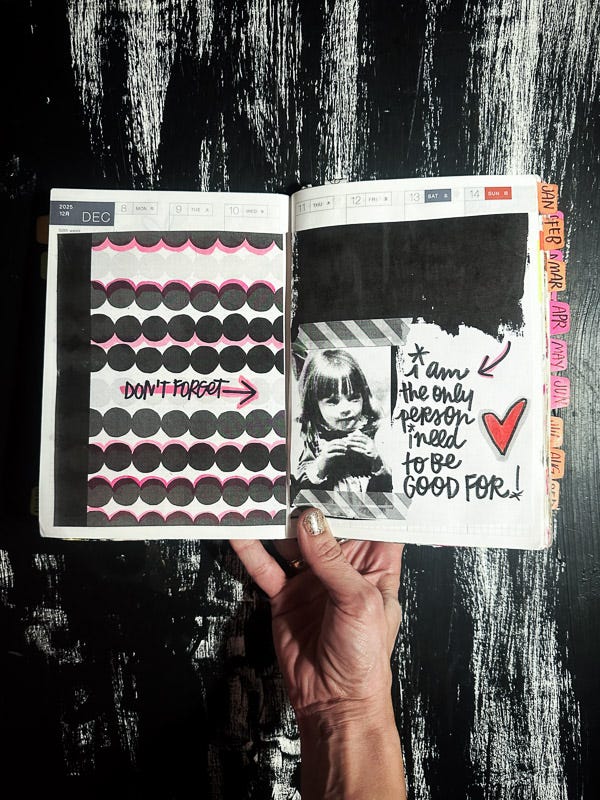 2025
12月 DEC
8 MON
9 TUE
10 WED
11 THU
12 FRI
13 SAT
14 SUN
DON'T FORGET
*i am
the only
person
i need
to be
GOOD FOR!
JAN
FEB
MAR
APR
MAY
JUN
AUG